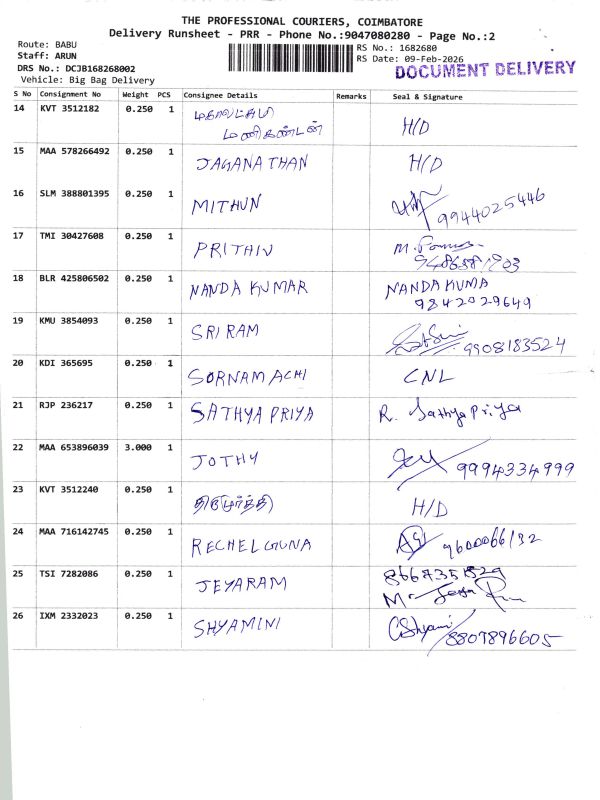 THE PROFESSIONAL COURIERS, COIMBATORE
Delivery Runsheet - PRR - Phone No.:9047080280 - Page No.:2
Route: BABU
Staff: ARUN
DRS No.: DCJB168268002
Vehicle: Big Bag Delivery
RS No.: 1682680
RS Date: 09-Feb-2026
DOCUMENT DELIVERY
S No Consignment No Weight PCS Consignee Details Remarks Seal & Signature
14 KVT 3512182 0.250 1 மகாலட்சுமி
மணிகண்டன் H/D
15 MAA 578266492 0.250 1 JAGANATHAN H/D
16 SLM 388801395 0.250 1 MITHUN 9944025446
17 TMI 30427608 0.250 1 PRITHIV M.
18 BLR 425806502 0.250 1 NANDA KUMAR NANDA KUMA
9842029649
19 KMU 3854093 0.250 1 SRI RAM 9908183524
20 KDI 365695 0.250 1 SORNAM ACHI CNL
21 RJP 236217 0.250 1 SATHYA PRIYA R. Sathya Priya
22 MAA 653896039 3.000 1 JOTHY 9994334999
23 KVT 3512240 0.250 1 H/D
24 MAA 716142745 0.250 1 RECHEL GUNA 9600066132
25 TSI 7282086 0.250 1 JEYARAM
26 IXM 2332023 0.250 1 SHYAMINI 8807896605